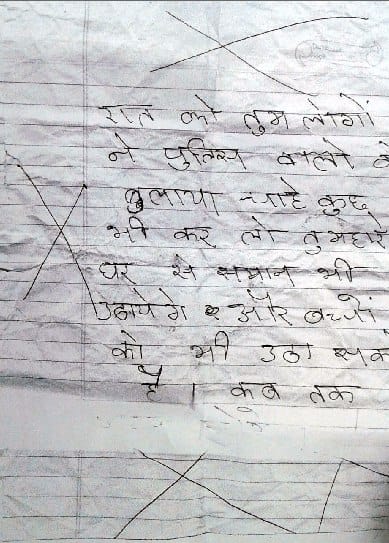 रात को तुम लोगों
ने पुलिस वालो को
बुलाया चाहे कुछ
भी कर लो तुमहारे
घर से समान भी
उठायेगे और बच्चों
को भी उठा सक
है । कब तक